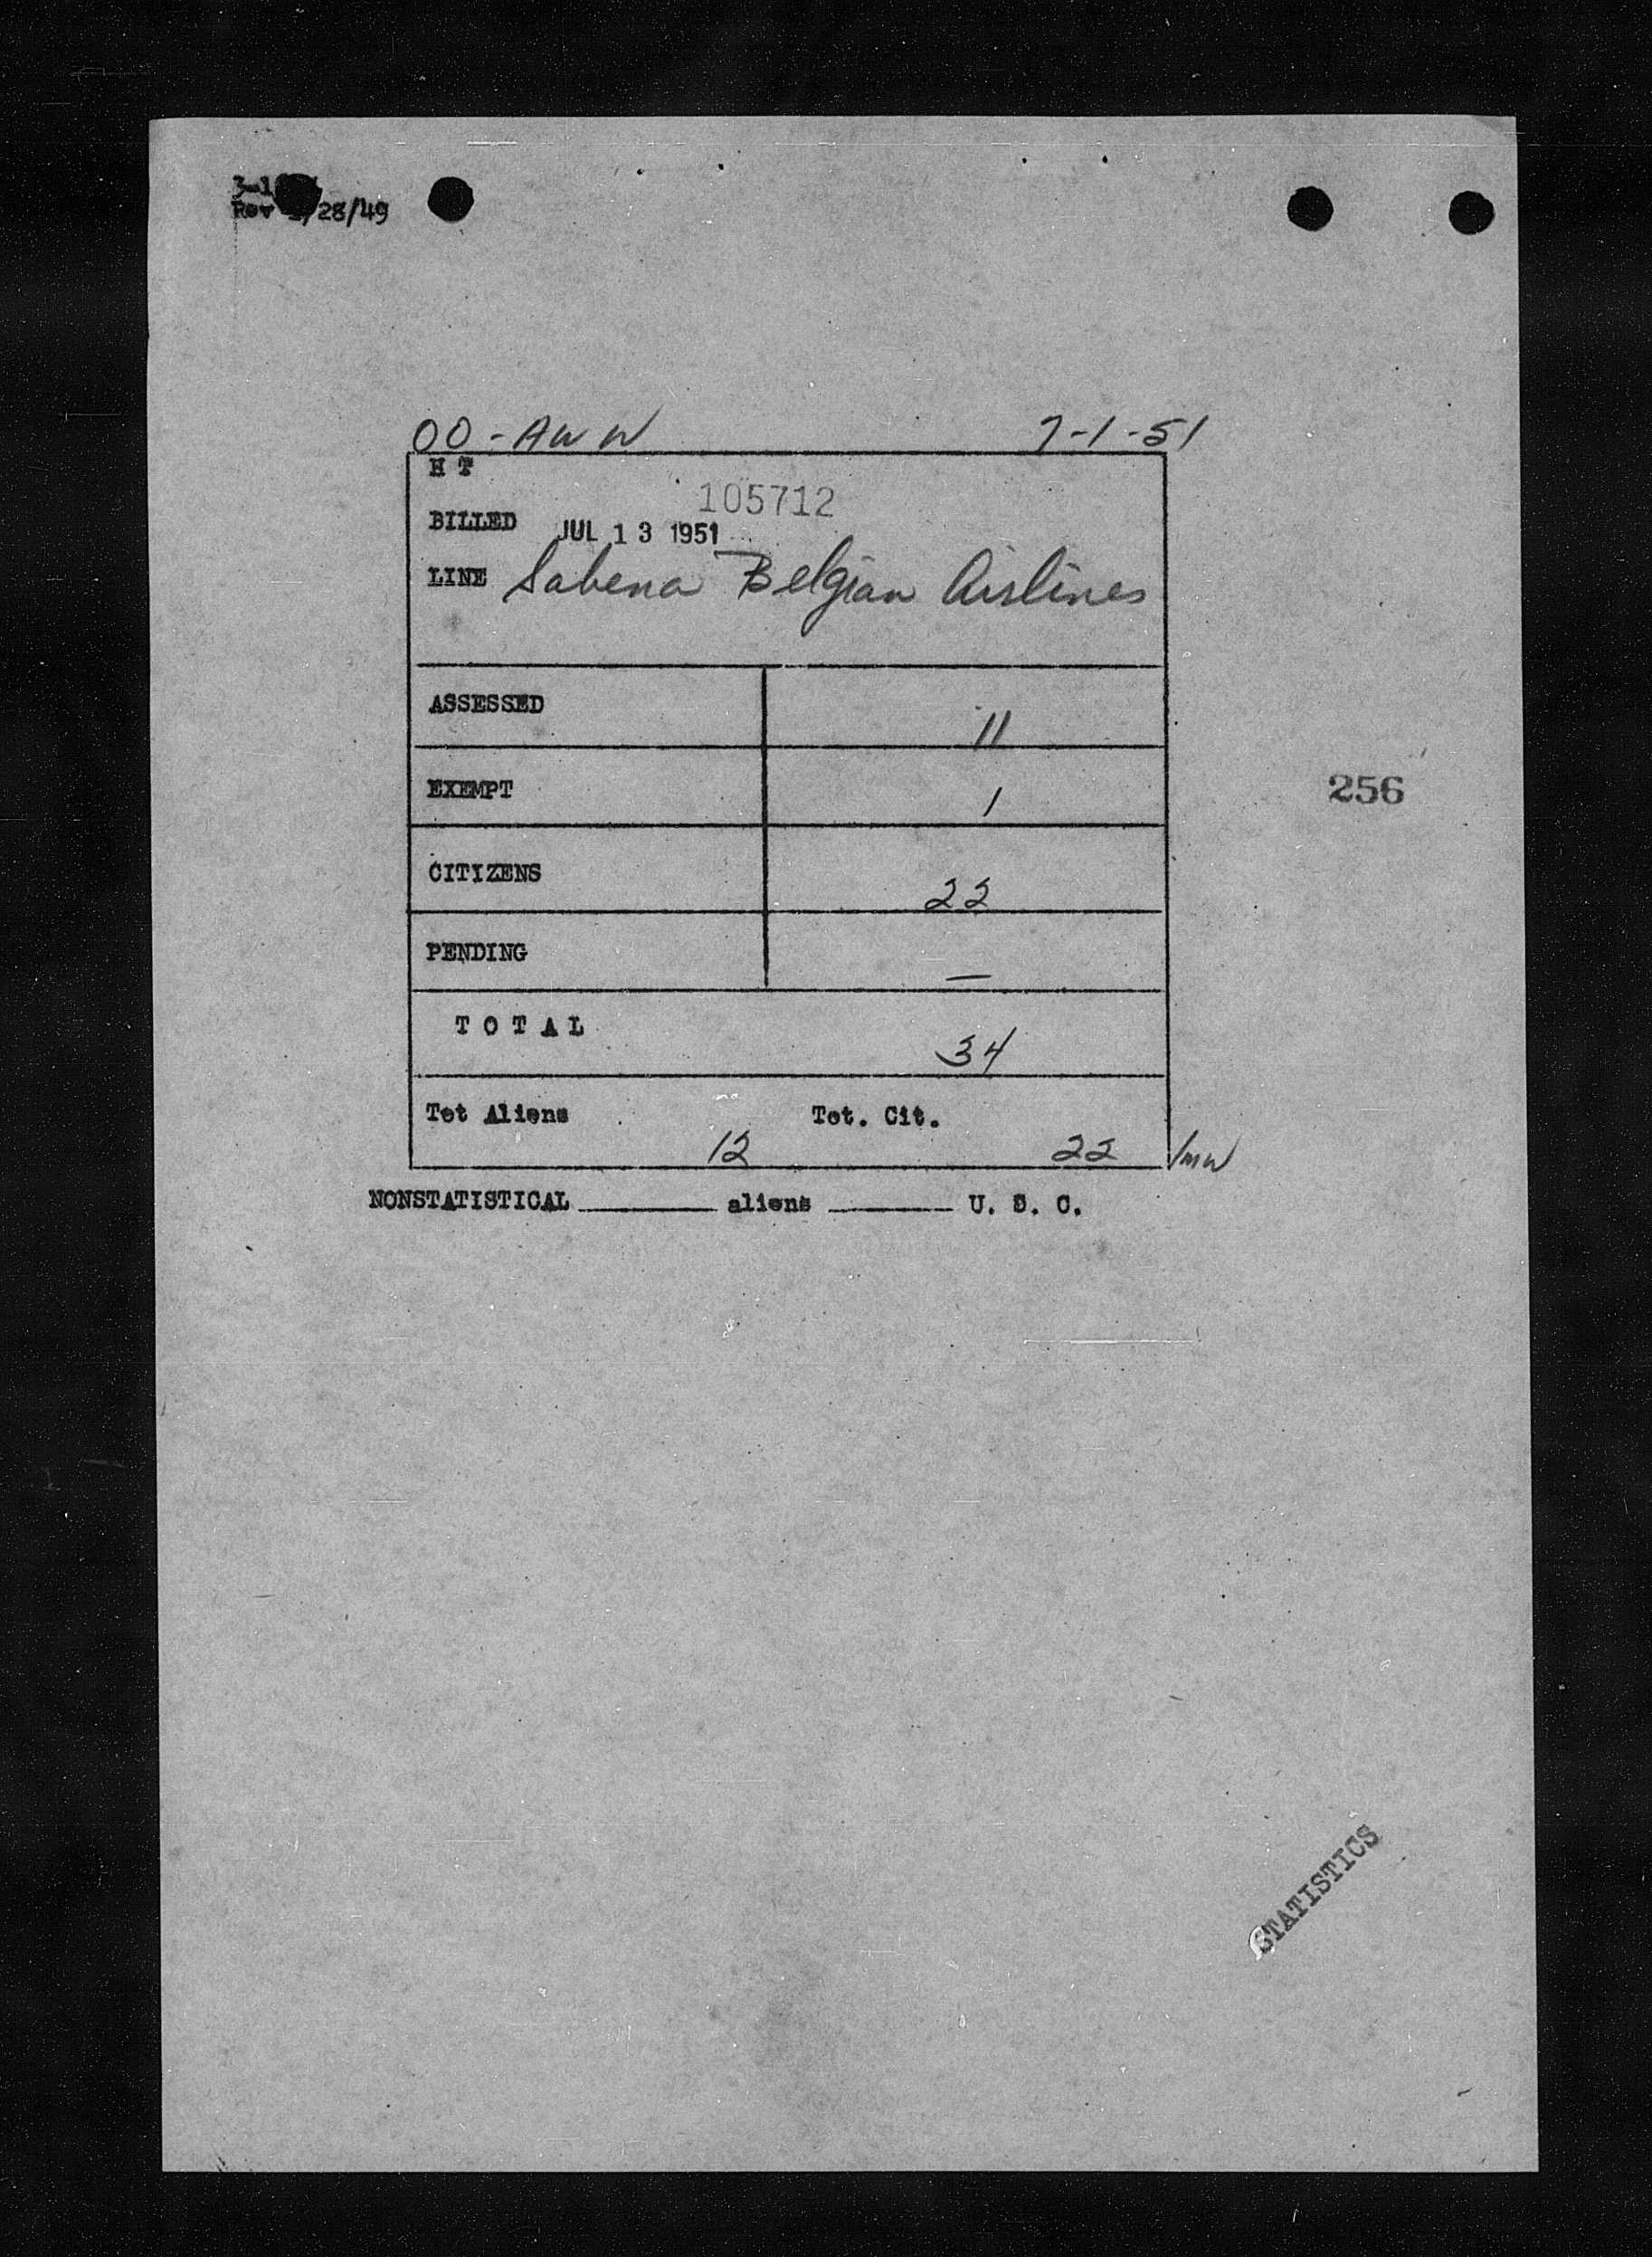 3-1
Rev /28/49
OO-AWW 7-1-51
H T
105712
BILLED JUL 13 1951
LINE Sabena Belgian Airlines
ASSESSED 11
EXEMPT 1
256
CITIZENS 22
PENDING —
TOTAL 34
Tot Aliens 12 Tot. Cit. 22 /mw
NONSTATISTICAL ______ aliens ______ U. S. C.
STATISTICS